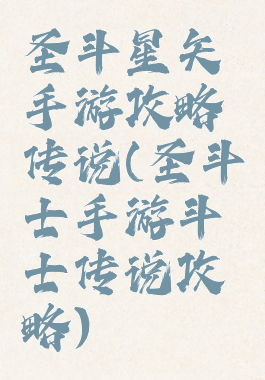 圣斗星矢
手游攻略
传说(圣斗
士手游斗
士传说攻
略)